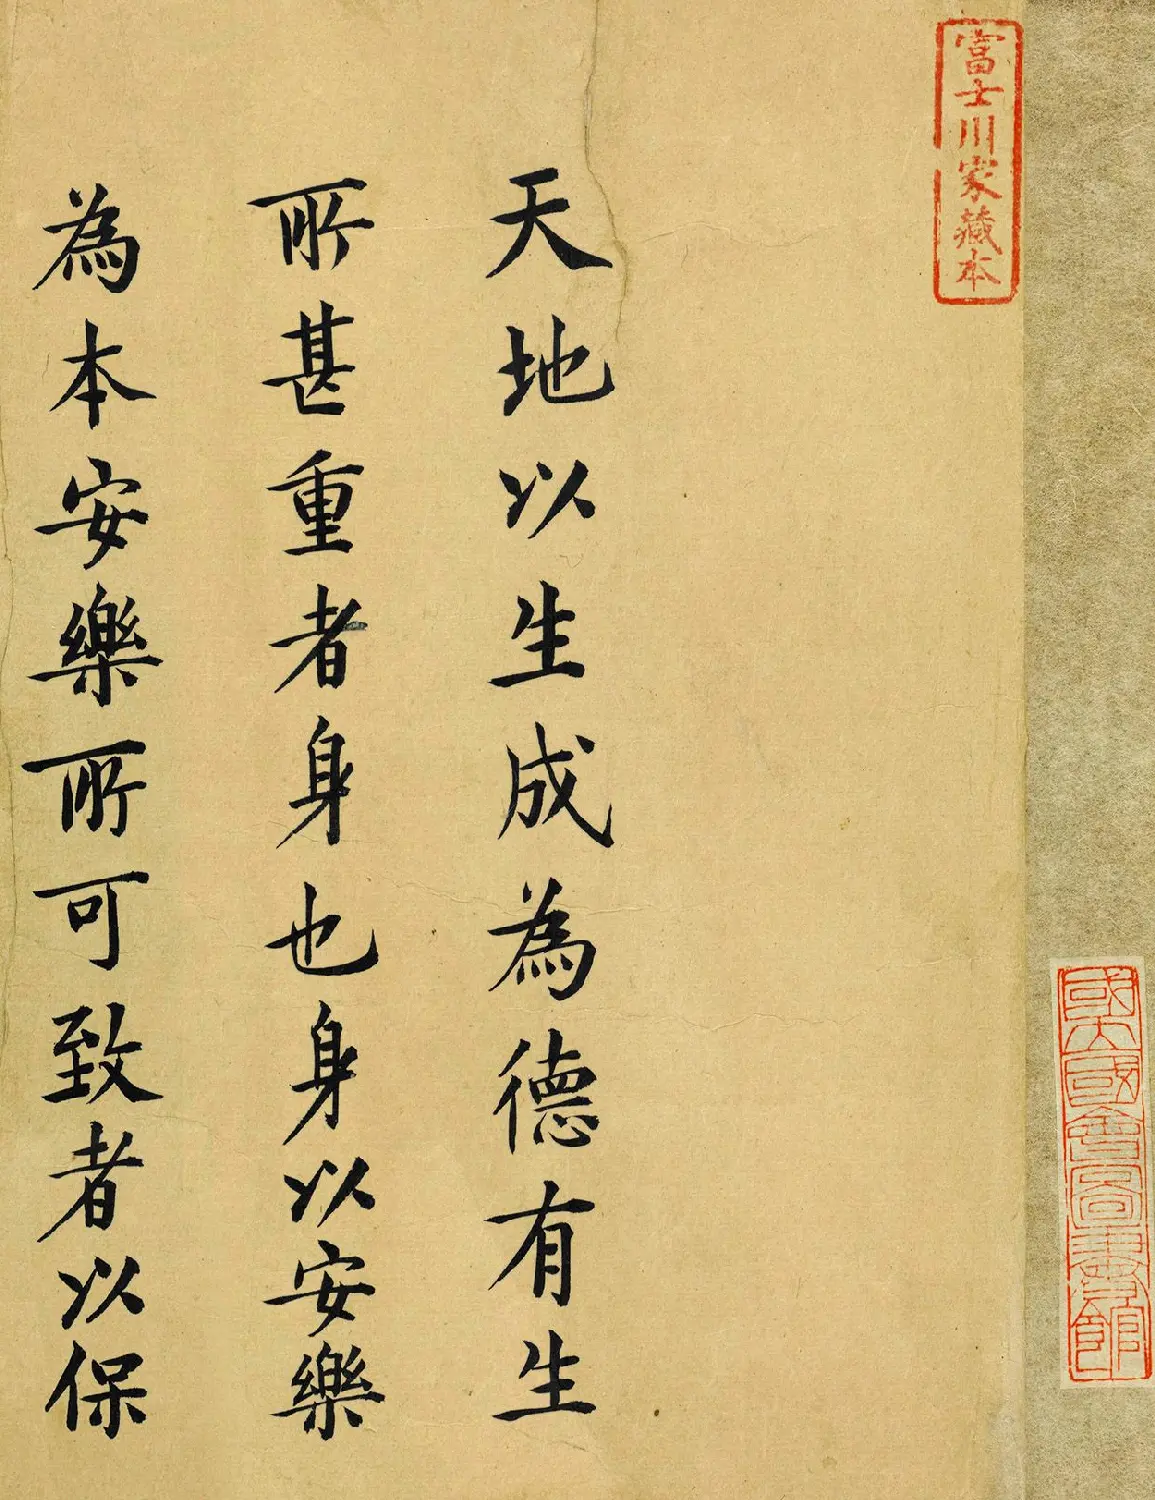 富士川家藏本
天地以生成為德有生
所甚重者身也身以安樂
為本安樂所可致者以保
國立國會圖書館